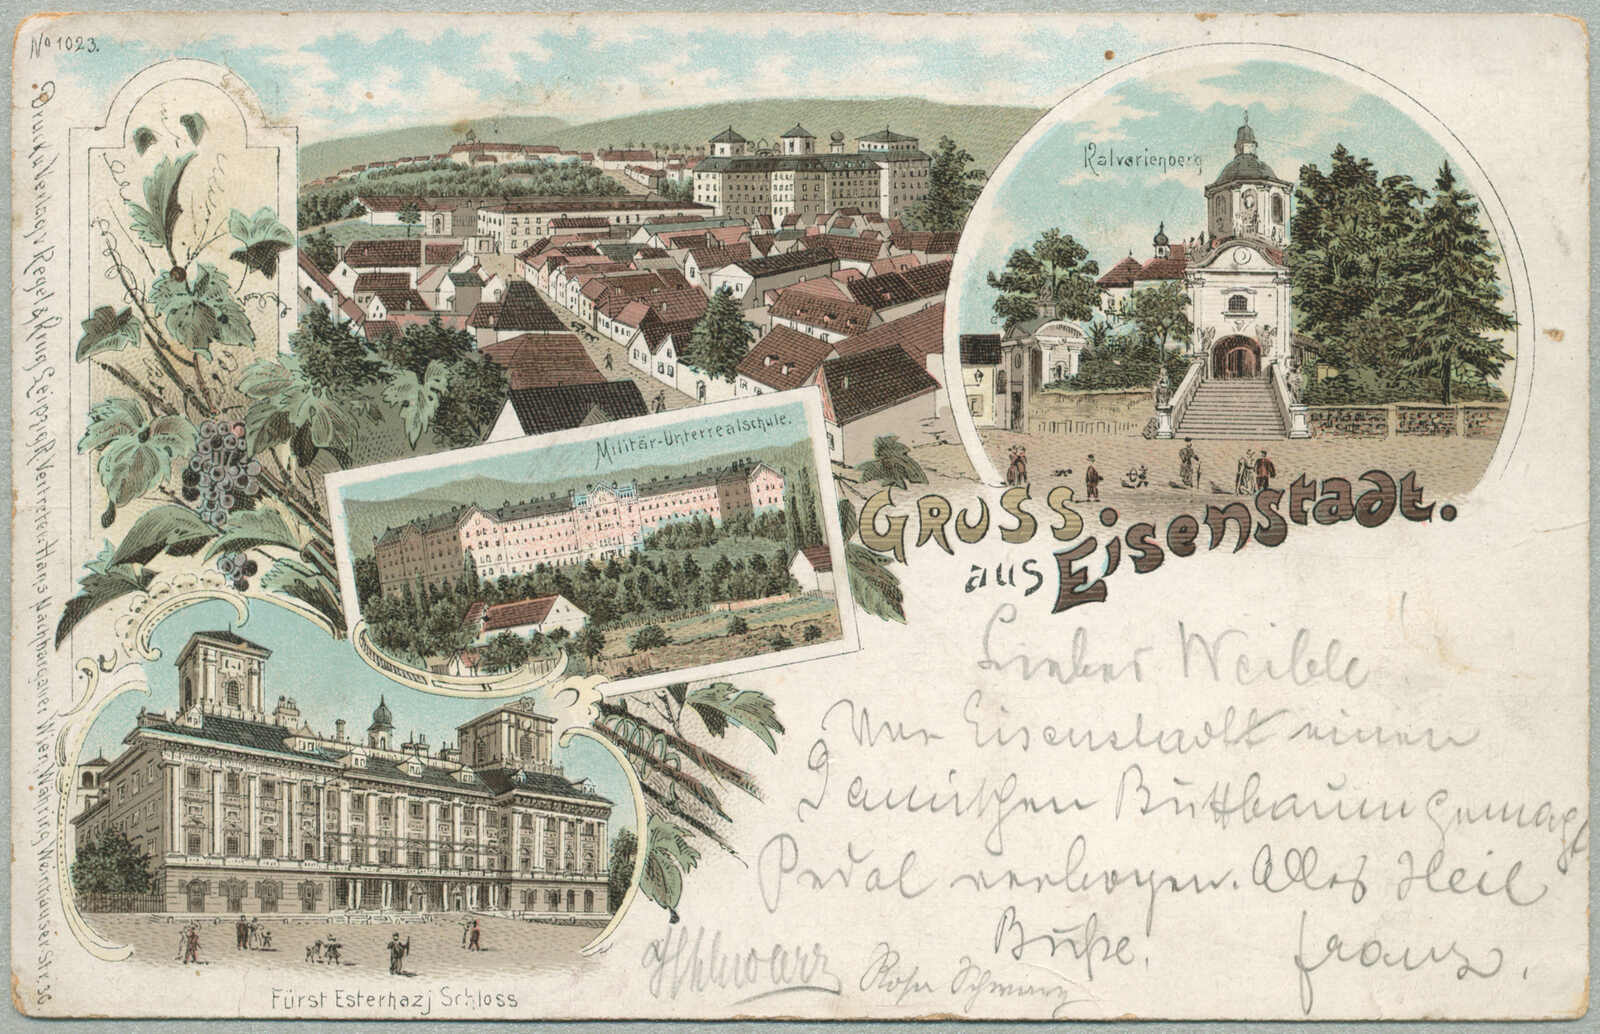 No 1023.
Druck u Verlag v Regel & Krug Leipzig R. Vertreter: Hans Nachbargauer Wien, Währing, Weinhauser-Str. 36
Kalvarienberg
Militär-Unterrealschule.
Gruss
aus Eisenstadt.
Liebes Weible!
Vor Eisenstadt einen
Purzelbaum gemacht
Pedal verbogen. Alles Heil
Buße. Franz.
Schwarz Rosa Schwarz
Fürst Esterhazj Schloss